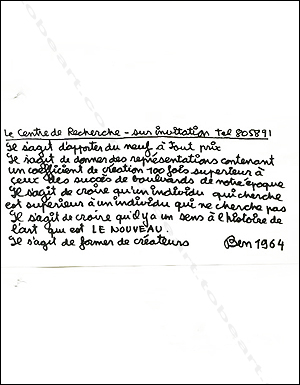 Le Centre de Recherche - sur invitation tel 805891
Il s'agit d'apporter du neuf à Tout prix
Il s'agit de donner des représentations contenant
un coefficient de création 100 fois supérieur à
ceux des succès de boulevards de notre époque
Il s'agit de croire qu'un individu qui cherche
est supérieur à un individu qui ne cherche pas
Il s'agit de croire qu'il y a un sens à l'histoire de
l'art qui est LE NOUVEAU.
Il s'agit de former de créateurs Ben 1964